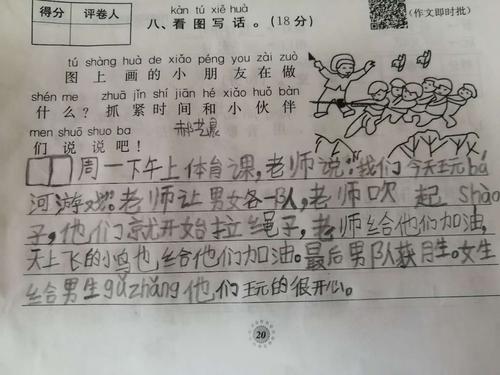 得分 评卷人
kàn tú xiě huà
八、看图写话。(18分)
(作文即时批)
tú shàng huà de xiǎo péng you zài zuò
图上画的小朋友在做
shén me zhuā jǐn shí jiān hé xiǎo huǒ bàn
什么?抓紧时间和小伙伴
men shuō shuo ba
们说说吧!
周一下午上体育课,老师说:我们今天玩bá
河游戏。老师让男女各一队,老师吹起shào
子,他们就开始拉绳子,老师给他们加油,
天上飞的小鸟也给他们加油。最后男队获月生。女生
给男生gǔzhǎng他们玩的很开心。
20